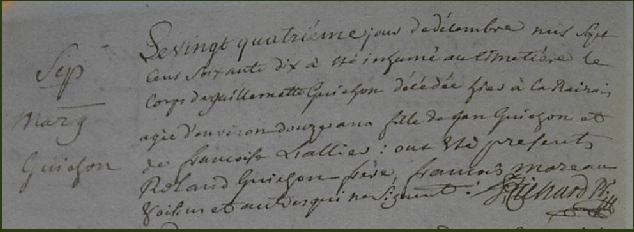 Sep
Marg
Guichon
Le vingt quatriéme jour de décembre mil sept
cens soixante dix a été inhumé au cimetiére le
corps de guillemette Guichon décédée hier à la
agée d'environ douze ans fille de jan Guichon et
de francoise Lallier : ont été presents
Roland Guichon frére, francois moreau
Voisin et autres qui ne signent . Richard